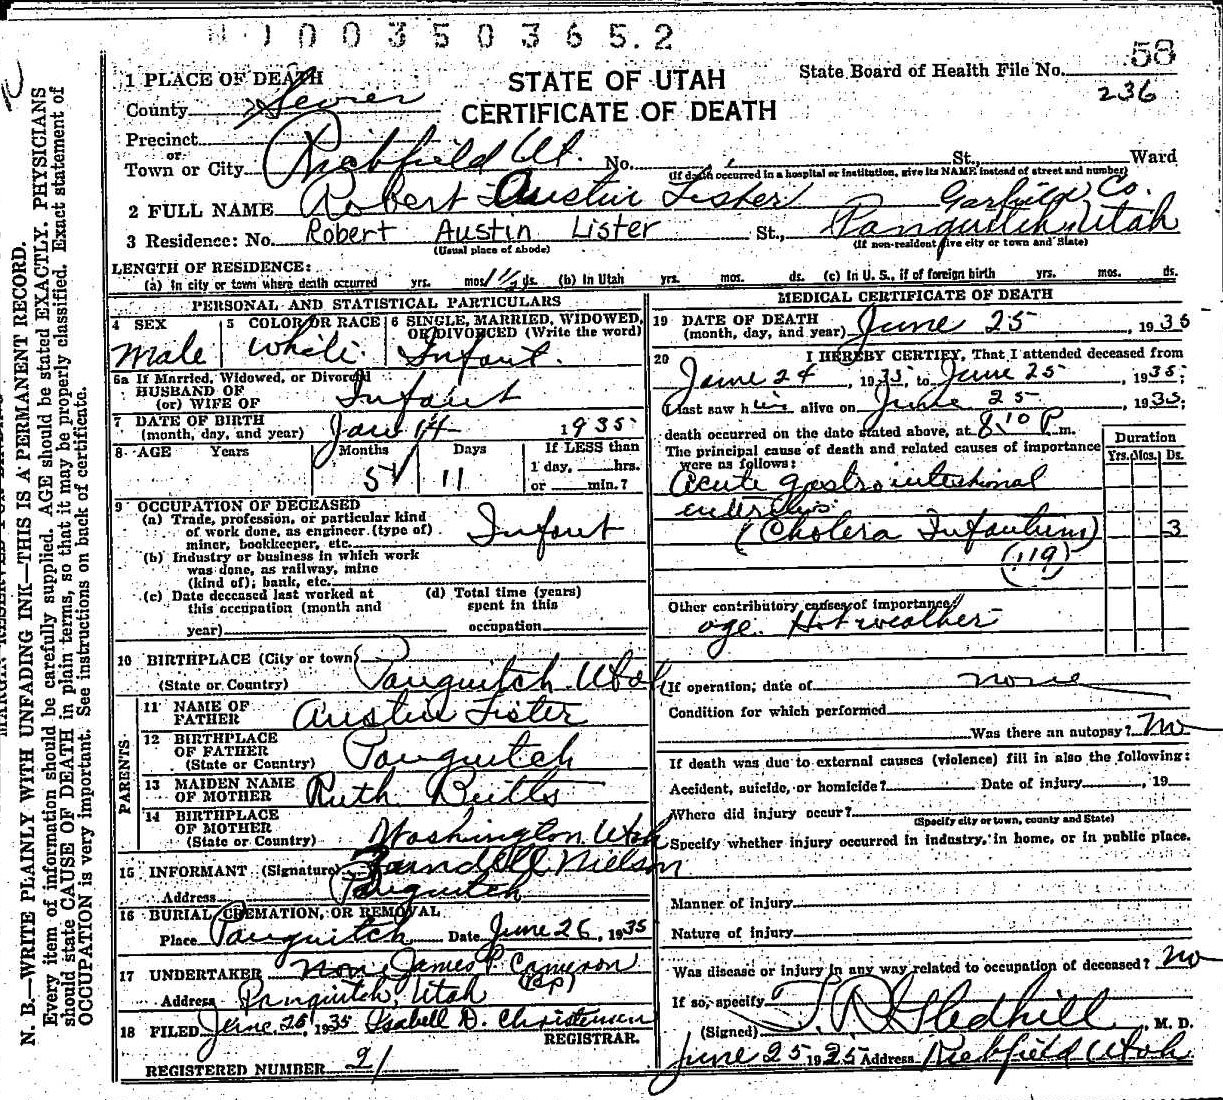 1 0 0 3 5 0 3 6 5. 2
1 PLACE OF DEATH
STATE OF UTAH
CERTIFICATE OF DEATH
State Board of Health File No. 58
236
County Sevier
Precinct
or
Town or City Richfield Ut. No. St., Ward
(If death occurred in a hospital or institution, give its NAME instead of street and number)
2 FULL NAME Robert Austin Lister
Garfield Co.
3 Residence: No. Robert Austin Lister St., Panguitch, Utah
(Usual place of abode) (If non-resident give city or town and State)
LENGTH OF RESIDENCE:
(a) In city or town where death occurred yrs. mos. 1 1/2 ds. (b) In Utah yrs. mos. ds. (c) In U. S., if of foreign birth yrs. mos. ds.
PERSONAL AND STATISTICAL PARTICULARS
4 SEX
Male
5 COLOR OR RACE
White
6 SINGLE, MARRIED, WIDOWED, OR DIVORCED (Write the word)
Infant.
6a If Married, Widowed, or Divorced
HUSBAND OF
(or) WIFE OF Infant
7 DATE OF BIRTH
(month, day, and year) Jan 14 1935
8 AGE Years Months Days If LESS than
5 11 1 day, hrs.
or min.?
9 OCCUPATION OF DECEASED
(a) Trade, profession, or particular kind
of work done, as engineer (type of)
miner, bookkeeper, etc. Infant
(b) Industry or business in which work
was done, as railway, mine
(kind of); bank, etc.
(c) Date deceased last worked at
this occupation (month and
year)
(d) Total time (years)
spent in this
occupation
10 BIRTHPLACE (City or town)
(State or Country) Panguitch Utah
PARENTS
11 NAME OF
FATHER Austin Lister
12 BIRTHPLACE
OF FATHER
(State or Country) Panguitch
13 MAIDEN NAME
OF MOTHER Ruth Butts
14 BIRTHPLACE
OF MOTHER
(State or Country) Washington Utah
15 INFORMANT (Signature) Farndell Nielson
Address Panguitch
16 BURIAL, CREMATION, OR REMOVAL
Place Panguitch Date June 26, 1935
17 UNDERTAKER None James P Cameron
Address Panguitch, Utah
18 FILED June 25, 1935 Isabell D. Christensen
REGISTRAR.
REGISTERED NUMBER 21
MEDICAL CERTIFICATE OF DEATH
19 DATE OF DEATH
(month, day, and year) June 25, 1935
20 I HEREBY CERTIFY, That I attended deceased from
June 24, 1935, to June 25, 1935;
I last saw him alive on June 25, 1935;
death occurred on the date stated above, at 8:10 P. m.
The principal cause of death and related causes of importance
were as follows:
Duration
Yrs. Mos. Ds.
Acute gastrointestinal
enteritis
(Cholera Infantum) 3
(119)
Other contributory causes of importance:
age. Hot weather
If operation, date of none
Condition for which performed
Was there an autopsy? No
If death was due to external causes (violence) fill in also the following:
Accident, suicide, or homicide? Date of injury , 19
Where did injury occur?
(Specify city or town, county and State)
Specify whether injury occurred in industry, in home, or in public place.
Manner of injury
Nature of injury
Was disease or injury in any way related to occupation of deceased? No
If so, specify
(Signed) T. R. Gledhill, M. D.
June 25 1925 Address Richfield Utah
N. B.—WRITE PLAINLY WITH UNFADING INK—THIS IS A PERMANENT RECORD.
Every item of information should be carefully supplied. AGE should be stated EXACTLY. PHYSICIANS
should state CAUSE OF DEATH in plain terms, so that it may be properly classified. Exact statement of
OCCUPATION is very important. See instructions on back of certificate.